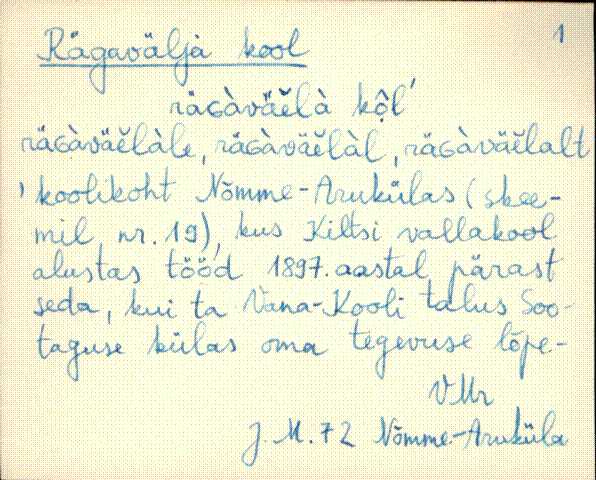 1
Rägavälja kool
räɢàväèlà kộl'
räɢàväèlàle, räɢàväèlàl, räɢàväèlalt
, koolikoht Nõmme-Arukülas (skee-
mil nr. 19), kus Kiltsi vallakool
alustas tööd 1897. aastal pärast
seda, kui ta Vana-Kooli talus Soo-
taguse külas oma tegevuse lõpe-
VMr
J. M. 72 Nõmme-Aruküla